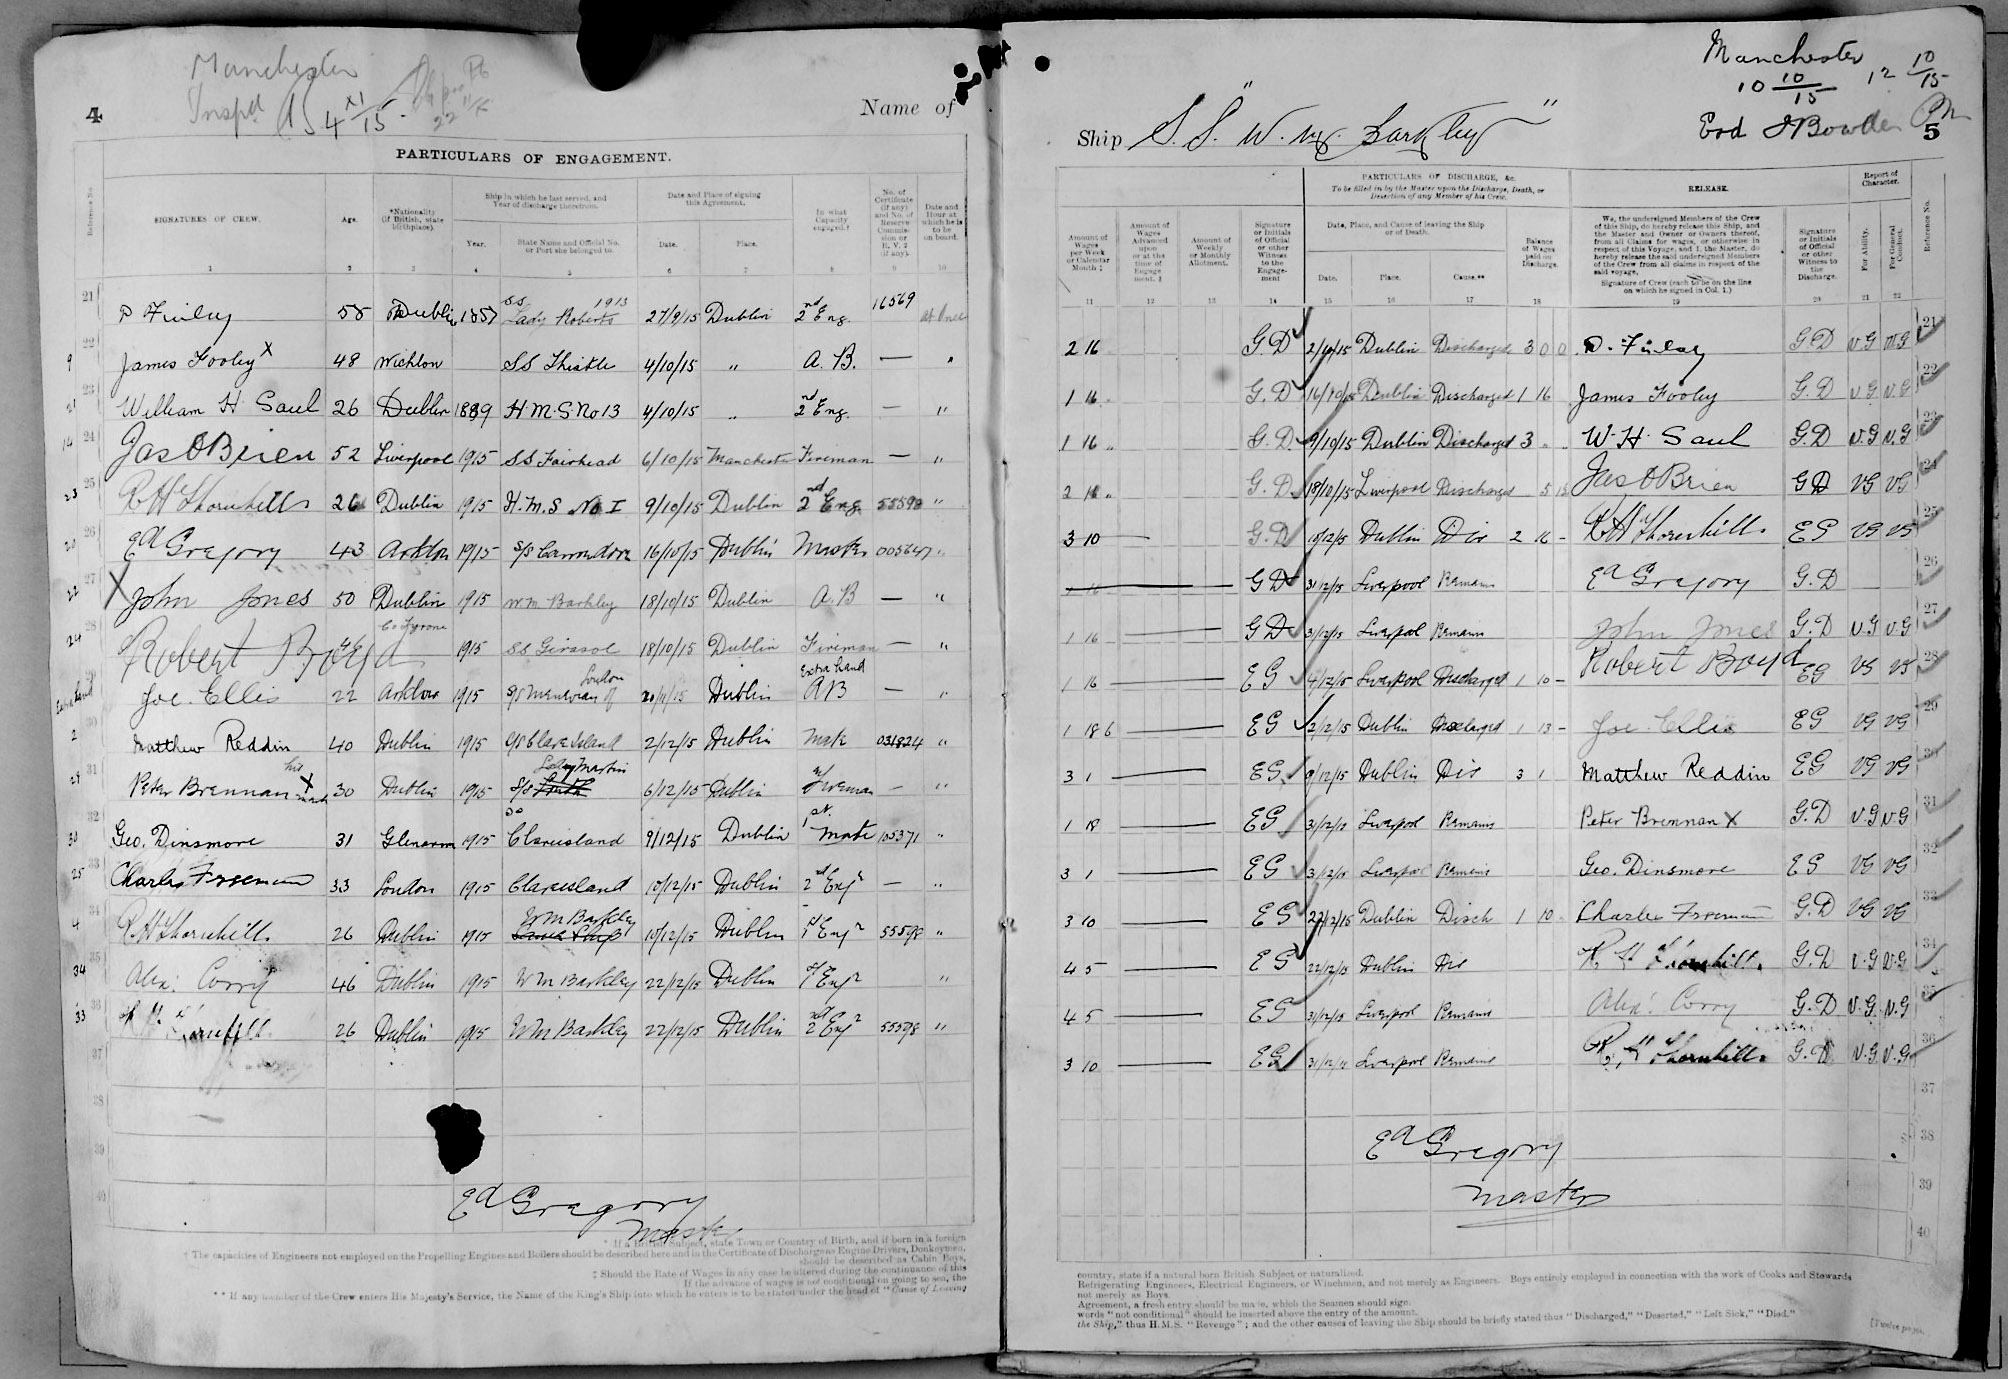 Manchester
Inspd 4 XI/15.
4
Name of
PARTICULARS OF ENGAGEMENT.
Reference No.
SIGNATURES OF CREW.
Age.
*Nationality
(if British, state
birthplace).
Ship in which he last served, and
Year of discharge therefrom.
Year.
State Name and Official No.
or Port she belonged to.
Date and Place of signing
this Agreement.
Date.
Place.
In what
Capacity
engaged.†
No. of
Certificate
(if any)
and No. of
Reserve
Commis-
sion or
R. V. 2
(if any).
Date and
Hour at
which he is
to be
on board.
1 2 3 4 5 6 7 8 9 10
21 P Finlay 58 Dublin 1857 SS Lady Roberts 1913 27/9/15 Dublin 2nd Eng. 16569 at Once
9 22 James Fooley X 48 Wicklow SS Thistle 4/10/15 " A. B. — "
21 23 William H Saul 26 Dublin 1889 H.M.S No 13 4/10/15 " 2nd Eng. — "
14 24 Jas O'Brien 52 Liverpool 1915 SS Fairhead 6/10/15 Manchester Fireman — "
23 25 R H Thornhill 26 Dublin 1915 H.M.S No I 9/10/15 Dublin 2nd Eng. 55598 "
20 26 Ed Gregory 43 Arklow 1915 S/S Carrowdore 16/10/15 Dublin Master 005647 "
22 27 X John Jones 50 Dublin 1915 Wm Barkley 18/10/15 Dublin A.B — "
24 28 Robert Boyd Co Tyrone 1915 SS Girasol 18/10/15 Dublin Fireman — "
Extra hand 29 Joe. Ellis 22 Arklow 1915 S/S of London 20/11/15 Dublin Extra hand AB — "
2 30 Matthew Reddin 40 Dublin 1915 S/S Clareisland 2/12/15 Dublin Mate 031824 "
31 Peter Brennan his X mark 30 Dublin 1915 S/S Lady Martin 6/12/15 Dublin Fireman — "
32 Geo. Dinsmore 31 Glenarm 1915 SS Clareisland 9/12/15 Dublin 1st Mate 105371 "
25 33 Charles Freeman 33 London 1915 Clareisland 10/12/15 Dublin 2nd Engr — "
4 34 R H Thornhill 26 Dublin 1915 Wm Barkley 10/12/15 Dublin 1st Engr 55598 "
34 35 Alex. Corry 46 Dublin 1915 Wm Barkley 22/12/15 Dublin Engr "
33 36 R. H. Thornhill 26 Dublin 1915 Wm Barkley 22/12/15 Dublin 2nd Engr 55598 "
37
38
39
40
Ed Gregory
Master
* If a British Subject, state Town or Country of Birth, and if born in a foreign
† The capacities of Engineers not employed on the Propelling Engines and Boilers should be described here and in the Certificate of Discharge as Engine Drivers, Donkeymen,
should be described as Cabin Boys,
‡ Should the Rate of Wages in any case be altered during the continuance of this
If the advance of wages is not conditional on going to sea, the
** If any member of the Crew enters His Majesty's Service, the Name of the King's Ship into which he enters is to be stated under the head of "Cause of Leaving
Manchester
10 10/15 12 10/15
End J Bowden
5
Ship S.S. "Wm. Barkley"
PARTICULARS OF DISCHARGE, &c.
To be filled in by the Master upon the Discharge, Death, or
Desertion of any Member of his Crew.
RELEASE.
Report of
Character.
Reference No.
Amount of
Wages
per Week
or Calendar
Month ‡
Amount of
Wages
Advanced
upon
or at the
time of
Engage
ment. ‡
Amount of
Weekly
or Monthly
Allotment.
Signature
or Initials
of Official
or other
Witness
to the
Engage-
ment
Date, Place, and Cause of leaving the Ship
or of Death.
Date.
Place.
Cause.**
Balance
of Wages
paid on
Discharge.
We, the undersigned Members of the Crew
of this Ship, do hereby release this Ship, and
the Master and Owner or Owners thereof,
from all Claims for wages, or otherwise in
respect of this Voyage, and I, the Master, do
hereby release the said undersigned Members
of the Crew from all claims in respect of the
said voyage.
Signature of Crew (each to be on the line
on which he signed in Col. 1.)
Signature
or Initials
of Official
or other
Witness to
the
Discharge.
For Ability.
For General
Conduct.
11 12 13 14 15 16 17 18 19 20 21 22
2 16 G.D 2/10/15 Dublin Discharged 3 0 0 D. Finlay G.D VG VG 21
1 16 G.D 16/10/15 Dublin Discharged 1 16 James Fooley G.D VG V.G 22
1 16 G.D. 9/10/15 Dublin Discharged 3 W. H. Saul G.D V.G V.G 23
2 16 G.D. 18/10/15 Liverpool Discharged 5 15 Jas O'Brien GD VG VG 24
3 10 — G.D 10/12/15 Dublin Dis 2 16 - R H Thornhill EG VG VG 25
G D 31/12/15 Liverpool Remains Ed Gregory G.D 26
1 16 — G D 31/12/15 Liverpool Remains John Jones G.D V.G V.G 27
1 16 — E G 4/12/15 Liverpool Discharged 1 10 - Robert Boyd EG VG VG 28
1 18 6 — E G 2/12/15 Dublin Discharged 1 13 - Joe. Ellis EG VG VG 29
3 1 — EG 9/12/15 Dublin Dis 3 1 Matthew Reddin EG VG VG 30
1 18 — EG 31/12/15 Liverpool Remains Peter Brennan X G.D V.G V.G 31
3 1 — EG 31/12/15 Liverpool Remains Geo. Dinsmore EG VG VG 32
3 10 — E G 22/12/15 Dublin Disch 1 10 Charles Freeman G.D VG VG 33
4 5 — E G 22/12/15 Dublin Dis R H Thornhill. G.D V.G V.G 34
4 5 — EG 31/12/15 Liverpool Remains Alex. Corry G.D V.G. V.G 35
3 10 — EG 31/12/15 Liverpool Remains R. H Thornhill. G.D. V.G. V.G 36
37
38
39
40
Ed Gregory
Master
country, state if a natural born British Subject or naturalized.
Refrigerating Engineers, Electrical Engineers, or Winchmen, and not merely as Engineers. Boys entirely employed in connection with the work of Cooks and Stewards
not merely as Boys.
Agreement, a fresh entry should be made, which the Seamen should sign.
words "not conditional" should be inserted above the entry of the amount.
the Ship," thus H.M.S. "Revenge"; and the other causes of leaving the Ship should be briefly stated thus "Discharged," "Deserted," "Left Sick," "Died."
[Twelve pages.